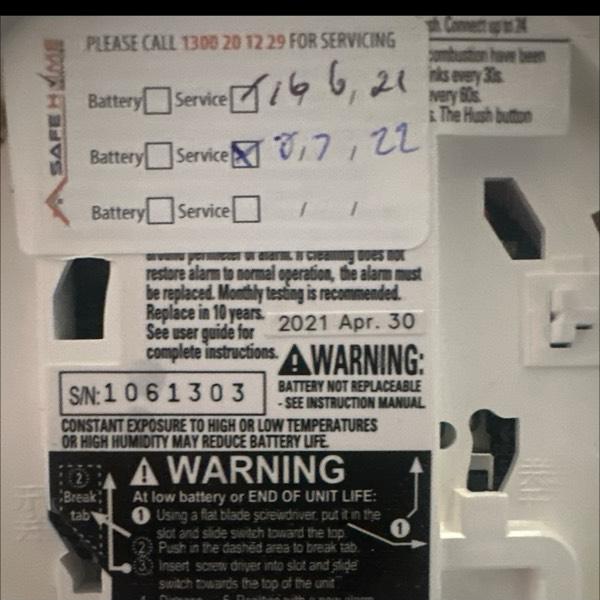 PLEASE CALL 1300 20 12 29 FOR SERVICING
SAFEHOME
Battery Service 16 6, 21
Battery Service 8, 7, 22
Battery Service / /
Connect up to 24
combustion have been
every 30s.
every 60s.
The Hush button
around perimeter of alarm. If cleaning does not
restore alarm to normal operation, the alarm must
be replaced. Monthly testing is recommended.
Replace in 10 years.
See user guide for
complete instructions.
2021 Apr. 30
WARNING:
BATTERY NOT REPLACEABLE
- SEE INSTRUCTION MANUAL
S/N:1061303
CONSTANT EXPOSURE TO HIGH OR LOW TEMPERATURES
OR HIGH HUMIDITY MAY REDUCE BATTERY LIFE.
WARNING
At low battery or END OF UNIT LIFE:
1 Using a flat blade screwdriver, put it in the
slot and slide switch toward the top.
2 Push in the dashed area to break tab.
3 Insert screw driver into slot and slide
switch towards the top of the unit
2
Break
tab
1